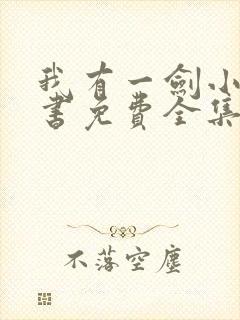 我有一劍小
書免費全集
不落空塵